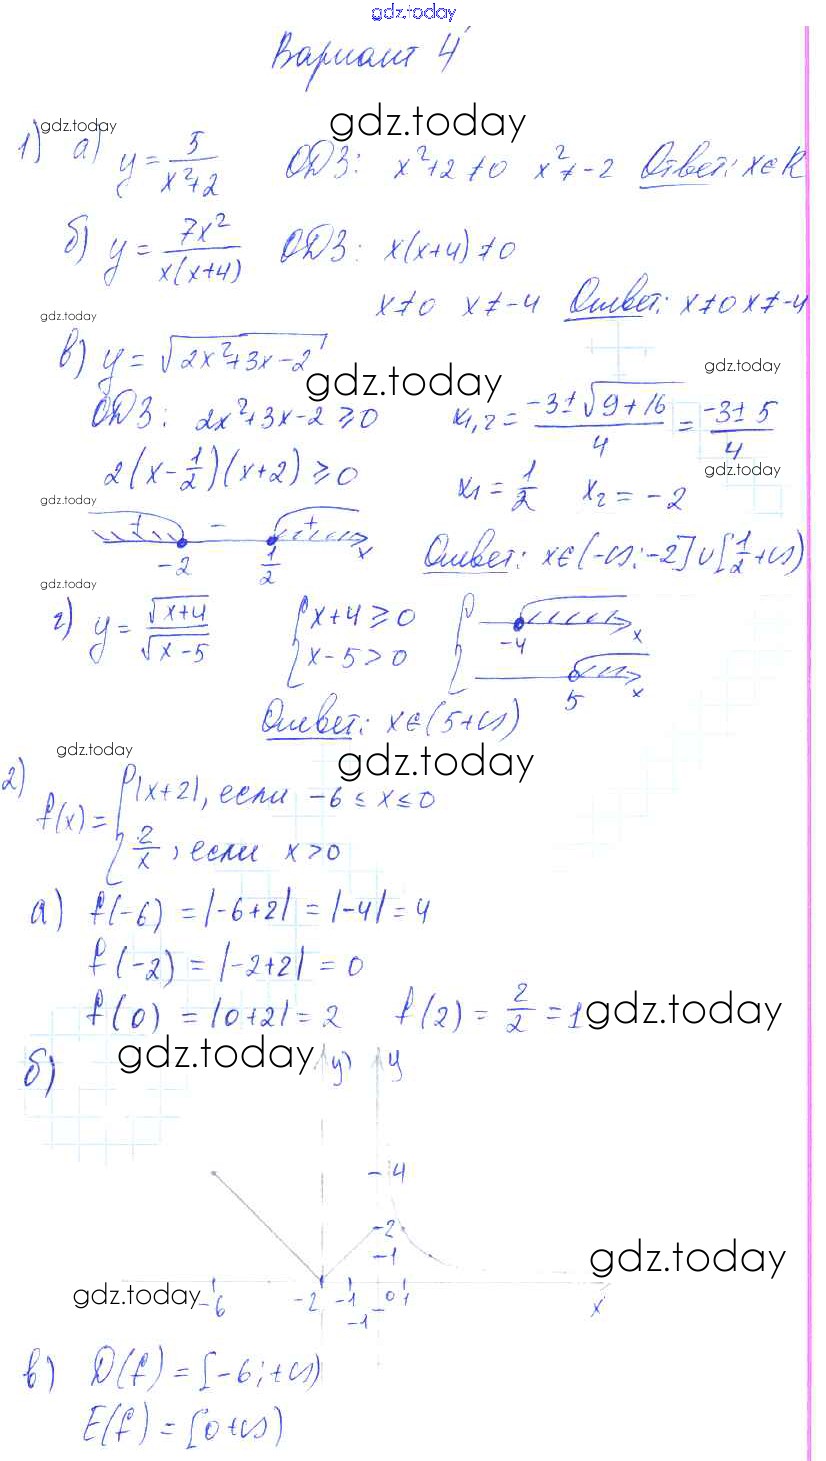 gdz.today
Вариант 4
gdz.today
gdz.today
1) а) y = 5/(x²+2) ОДЗ: x²+2 ≠ 0 x² ≠ -2 Ответ: x ∈ R
б) y = 7x²/(x(x+4)) ОДЗ: x(x+4) ≠ 0
x ≠ 0 x ≠ -4 Ответ: x ≠ 0 x ≠ -4
gdz.today
в) y = √(2x²+3x-2)
gdz.today
gdz.today
ОДЗ: 2x²+3x-2 ⩾ 0 x1,2 = (-3±√(9+16))/4 = (-3±5)/4
gdz.today
2(x-1/2)(x+2) ⩾ 0 x1 = 1/2 x2 = -2
gdz.today
+ - +
-2 1/2 x
Ответ: x ∈ (-∞; -2] ∪ [1/2 +∞)
gdz.today
г) y = √(x+4)/√(x-5) { x+4 ⩾ 0 { -4 x
x-5 > 0 5 x
Ответ: x ∈ (5 +∞)
gdz.today
gdz.today
2) f(x) = { |x+2|, если -6 ≤ x ≤ 0
2/x, если x > 0
а) f(-6) = |-6+2| = |-4| = 4
f(-2) = |-2+2| = 0
f(0) = |0+2| = 2 f(2) = 2/2 = 1
gdz.today
gdz.today
б) y) y
4
2
1
gdz.today
gdz.today
-6 -2 -1 0 1 x
-1
в) D(f) = [-6; +∞)
E(f) = [0 +∞)